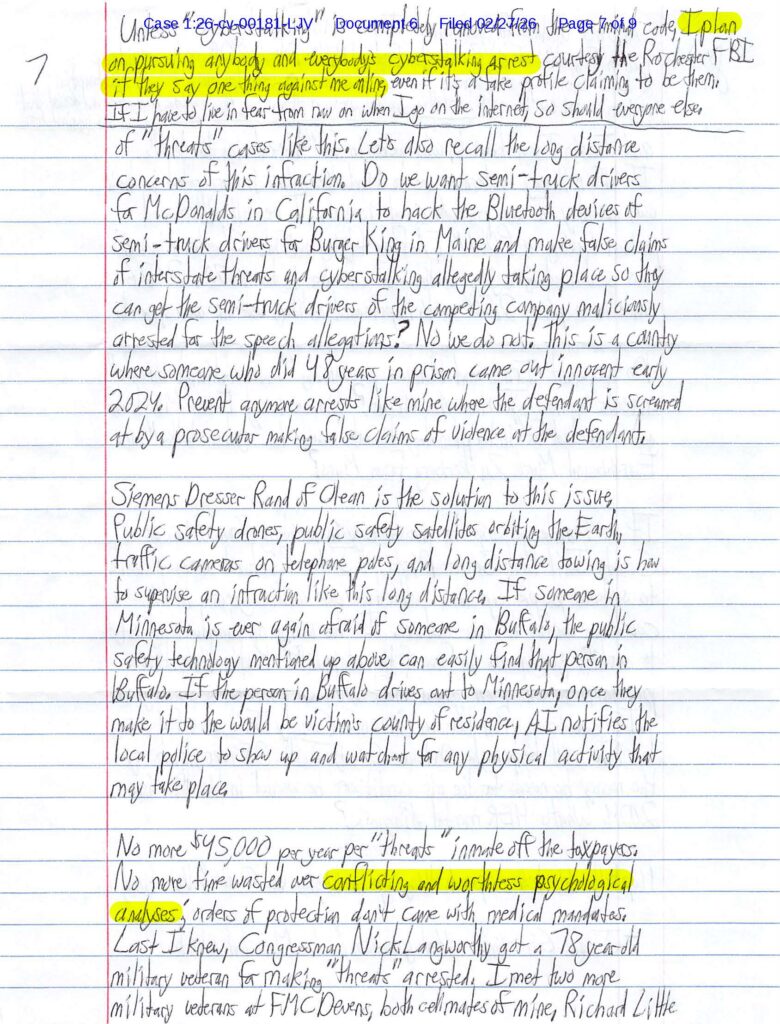 Case 1:26-cv-00181-LJV Document 6 Filed 02/27/26 Page 7 of 9
Unless "cyberstalking" is completely removed from the criminal code, I plan
7
on pursuing anybody and everybody's cyberstalking arrest courtesy the Rochester FBI
if they say one thing against me online, even if it's a fake profile claiming to be them.
If I have to live in fear from now on when I go on the internet, so should everyone else.
of "threats" cases like this. Let's also recall the long distance
concerns of this infraction. Do we want semi-truck drivers
for McDonalds in California to hack the Bluetooth devices of
semi-truck drivers for Burger King in Maine and make false claims
of interstate threats and cyberstalking allegedly taking place so they
can get the semi-truck drivers of the competing company maliciously
arrested for the speech allegations? No we do not. This is a country
where someone who did 48 years in prison came out innocent early
2024. Prevent anymore arrests like mine where the defendant is screamed
at by a prosecutor making false claims of violence at the defendant.
Siemens Dresser Rand of Olean is the solution to this issue.
Public safety drones, public safety satellites orbiting the Earth,
traffic cameras on telephone poles, and long distance towing is how
to supervise an infraction like this long distance. If someone in
Minnesota is ever again afraid of someone in Buffalo, the public
safety technology mentioned up above can easily find that person in
Buffalo. If the person in Buffalo drives out to Minnesota, once they
make it to the would be victim's county of residence, AI notifies the
local police to show up and watch out for any physical activity that
may take place.
No more $45,000 per year per "threats" inmate off the taxpayers.
No more time wasted over conflicting and worthless psychological
analyses; orders of protection don't come with medical mandates.
Last I knew, Congressman Nick Langworthy got a 78 year old
military veteran for making "threats" arrested. I met two more
military veterans at FMC Devens, both cellmates of mine, Richard Little